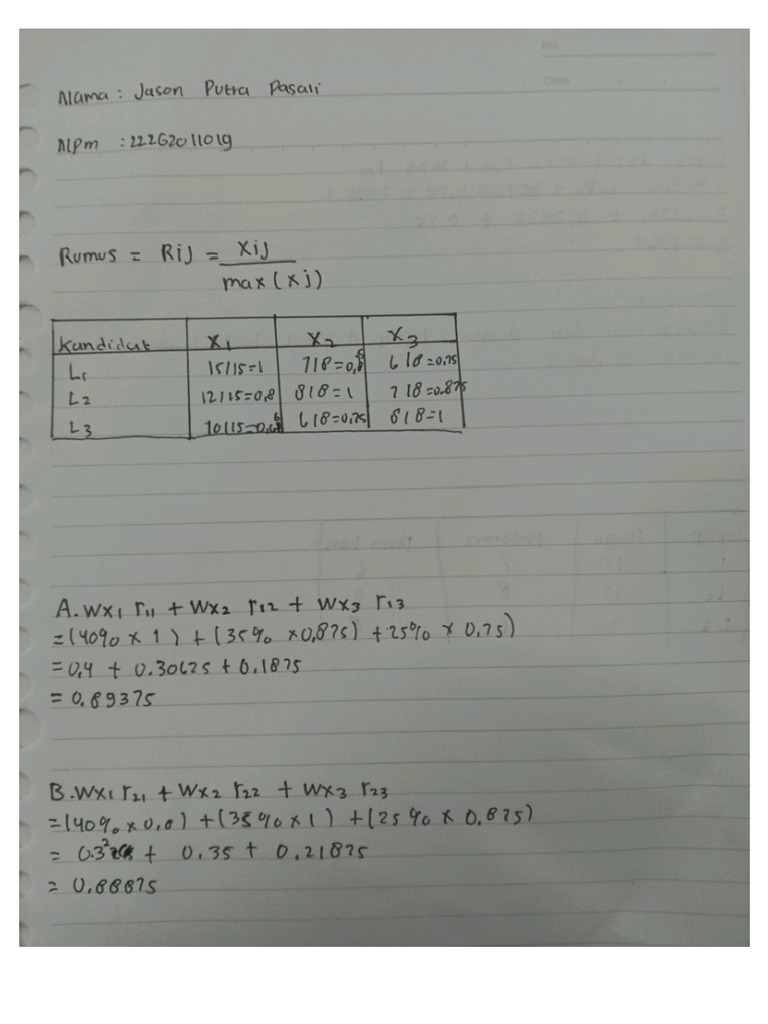 No.
Date
Nama : Jason Putra Pasali
Npm : 2226201109
Rumus = Rij = xij / max (xj)
Kandidat x1 x2 x3
L1 15/15=1 7/8=0,8 6/8=0.75
L2 12/15=0,8 8/8=1 7/8=0.875
L3 10/15=0,6 6/8=0.75 8/8=1
A. Wx1 r11 + Wx2 r12 + Wx3 r13
=(40% x 1) + (35% x 0,875) + 25% x 0.75)
=0,4 + 0.30625 + 0.1875
= 0.89375
B. Wx1 r21 + Wx2 r22 + Wx3 r23
=(40% x 0,8) + (35% x 1) + (25% x 0.875)
= 0.32 + 0.35 + 0.21875
= 0.88875